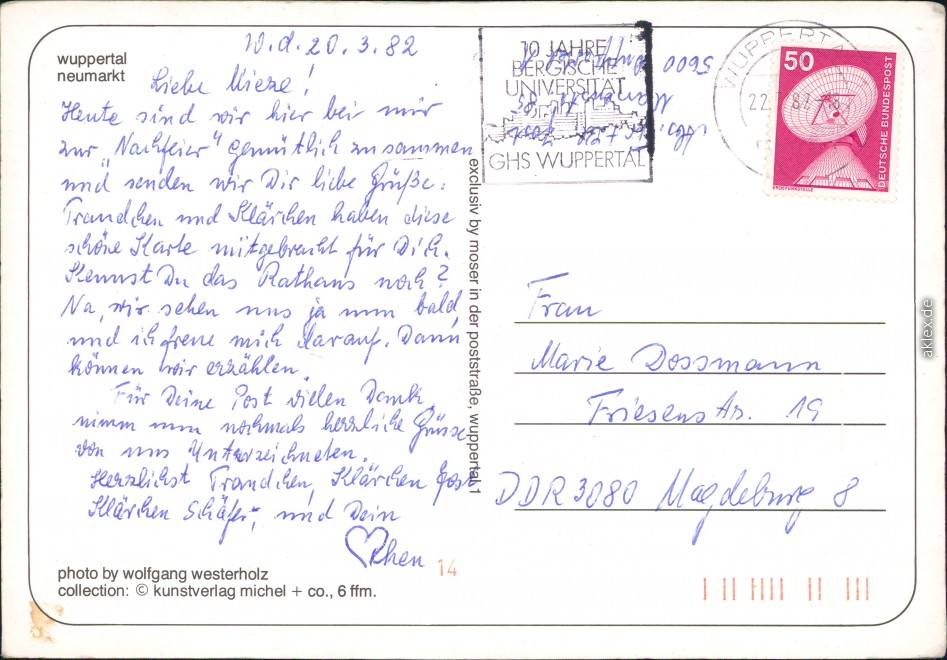 wuppertal
neumarkt
W.d. 20.3.82
Liebe Mieze!
Heute sind wir hier bei mir
zur "Nachfeier" gemütlich zusammen
und senden wir Dir liebe Grüße.
Traudchen und Klärchen haben diese
schöne Karte mitgebracht für Dich.
Kennst Du das Rathaus noch?
Na, wir sehen uns ja nun bald,
und ich freue mich darauf. Dann
können wir erzählen.
Für Deine Post vielen Dank,
nimm nun nochmals herzliche Grüsse
von uns Unterzeichneten.
Herzlichst Traudchen, Klärchen
Klärchen Schäfer, und Dein
♡chen
14
photo by wolfgang westerholz
collection: © kunstverlag michel + co., 6 ffm.
exclusiv by moser in der poststraße, wuppertal 1
10 JAHRE
BERGISCHE
UNIVERSITÄT
GHS WUPPERTAL
5600
WUPPERTAL
22.
50
DEUTSCHE BUNDESPOST
ERDEFUNKSTELLE
Frau
Marie Dossmann
Friesenstr. 19
DDR 3080 Magdeburg 8
aklex.de